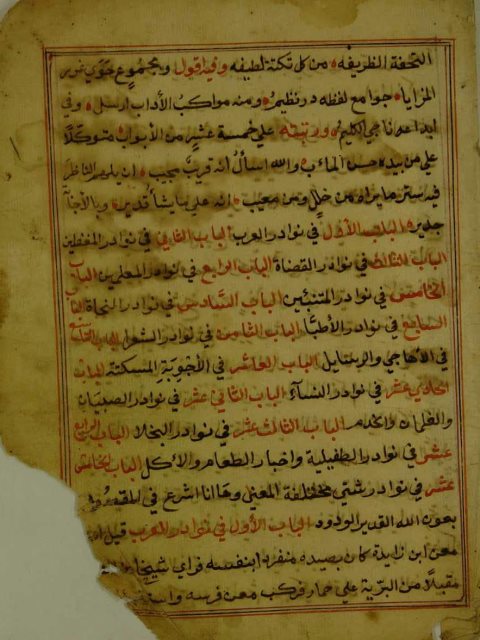 التحفة الظريفه من كل نكتة لطيفه وفيه اقول ومجموع حوي غرر
المزايا جوامع لفظه در نظيم ومنه مواكب الآداب ارسل وفي
الكليم ورتبته علي خمسة عشر من الأبواب متوكلا
علي من بيده حسن المآب والله اسأل انه قريب مجيب ان يلهم الناظر
فيه ستر ما يراه من خلل ومن معيب انه علي ما يشأ قدير
جدير الباب الأول في نوادر العرب الباب الثاني في نوادر المغفلين
الباب الثالث في نوادر القضاة الباب الرابع في نوادر المعلمين الباب
الخامس في نوادر المتنبئين الباب السادس في نوادر النحاة الباب
السابع في نوادر الأطبا الباب الثامن في نوادر الباب التاسع
في الأهاجي الباب العاشر في الأجوبة المسكتة الباب
الحادي عشر في نوادر النسآء الباب الثاني عشر في نوادر الصبيان
والغلمان والخدام الباب الثالث عشر في نوادر البخلا الباب الرابع
عشر في نوادر الطفيلية واخبار الطعام والأكل الباب الخامس
عشر في نوادر شتي مختلفة المعني وها انا اشرع في المقصود
بعون الله القدير الودود الباب الأول في نوادر العرب قيل
معن ابن زايدة كان بصيده منفرد ابنفسه فراي شيخا
مقبلا من البرية علي حمار فركب معن فرسه